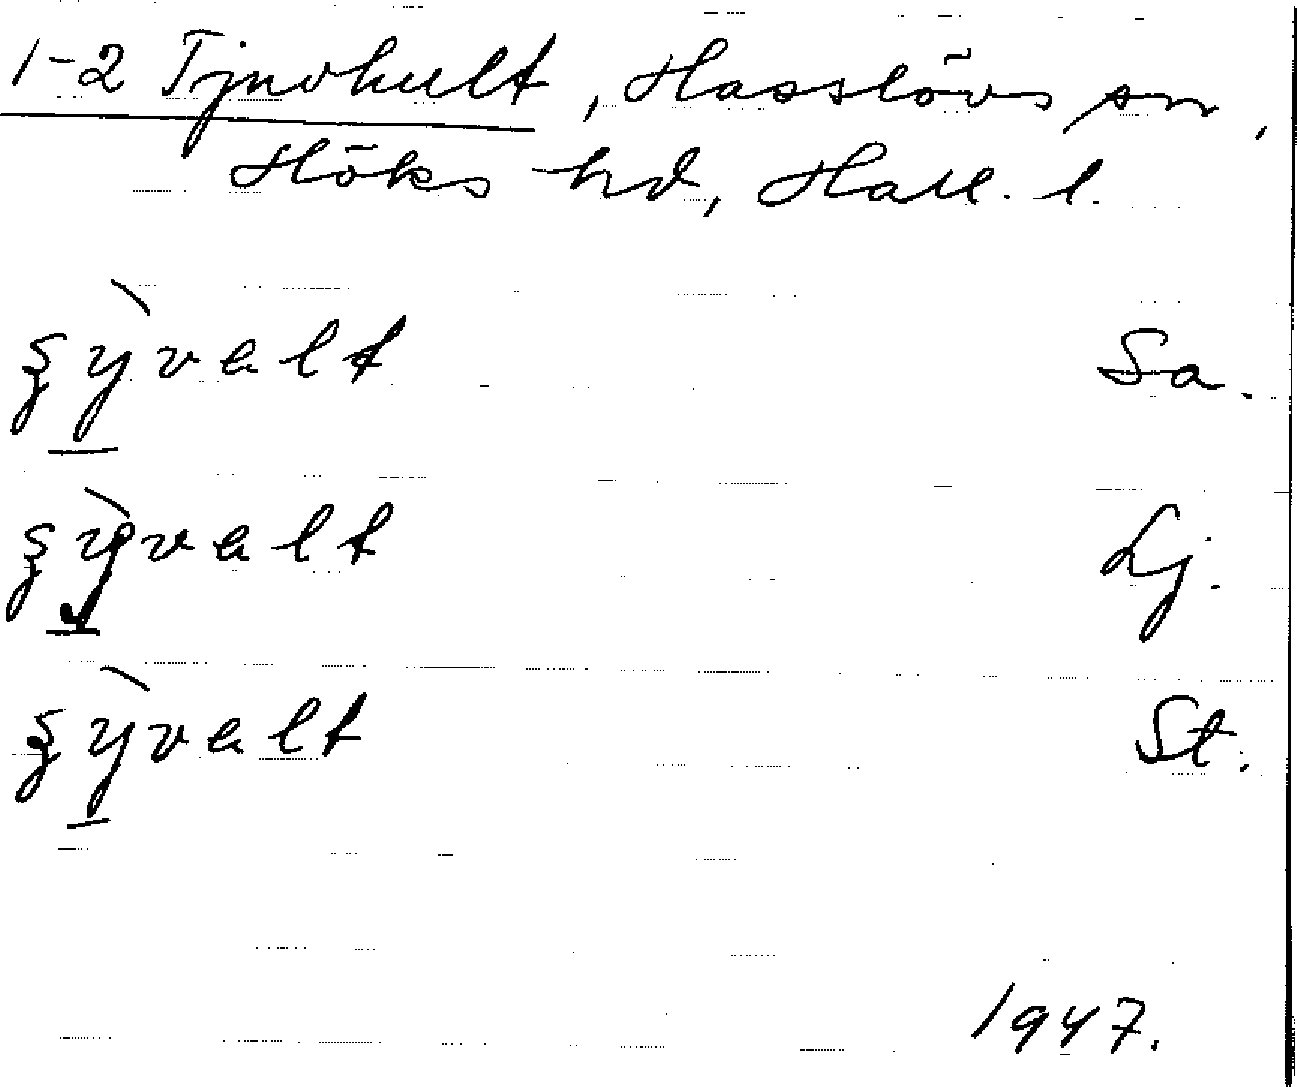 1-2 Tjuvhult, Hasslövs sn,
Höks hd, Hall. l.
ʂỳvalt Sa.
ʂỳvalt Lj.
ʂỳvalt St.
1947.